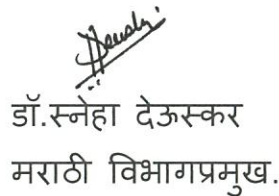 डॉ.स्नेहा देऊस्कर
मराठी विभागप्रमुख.